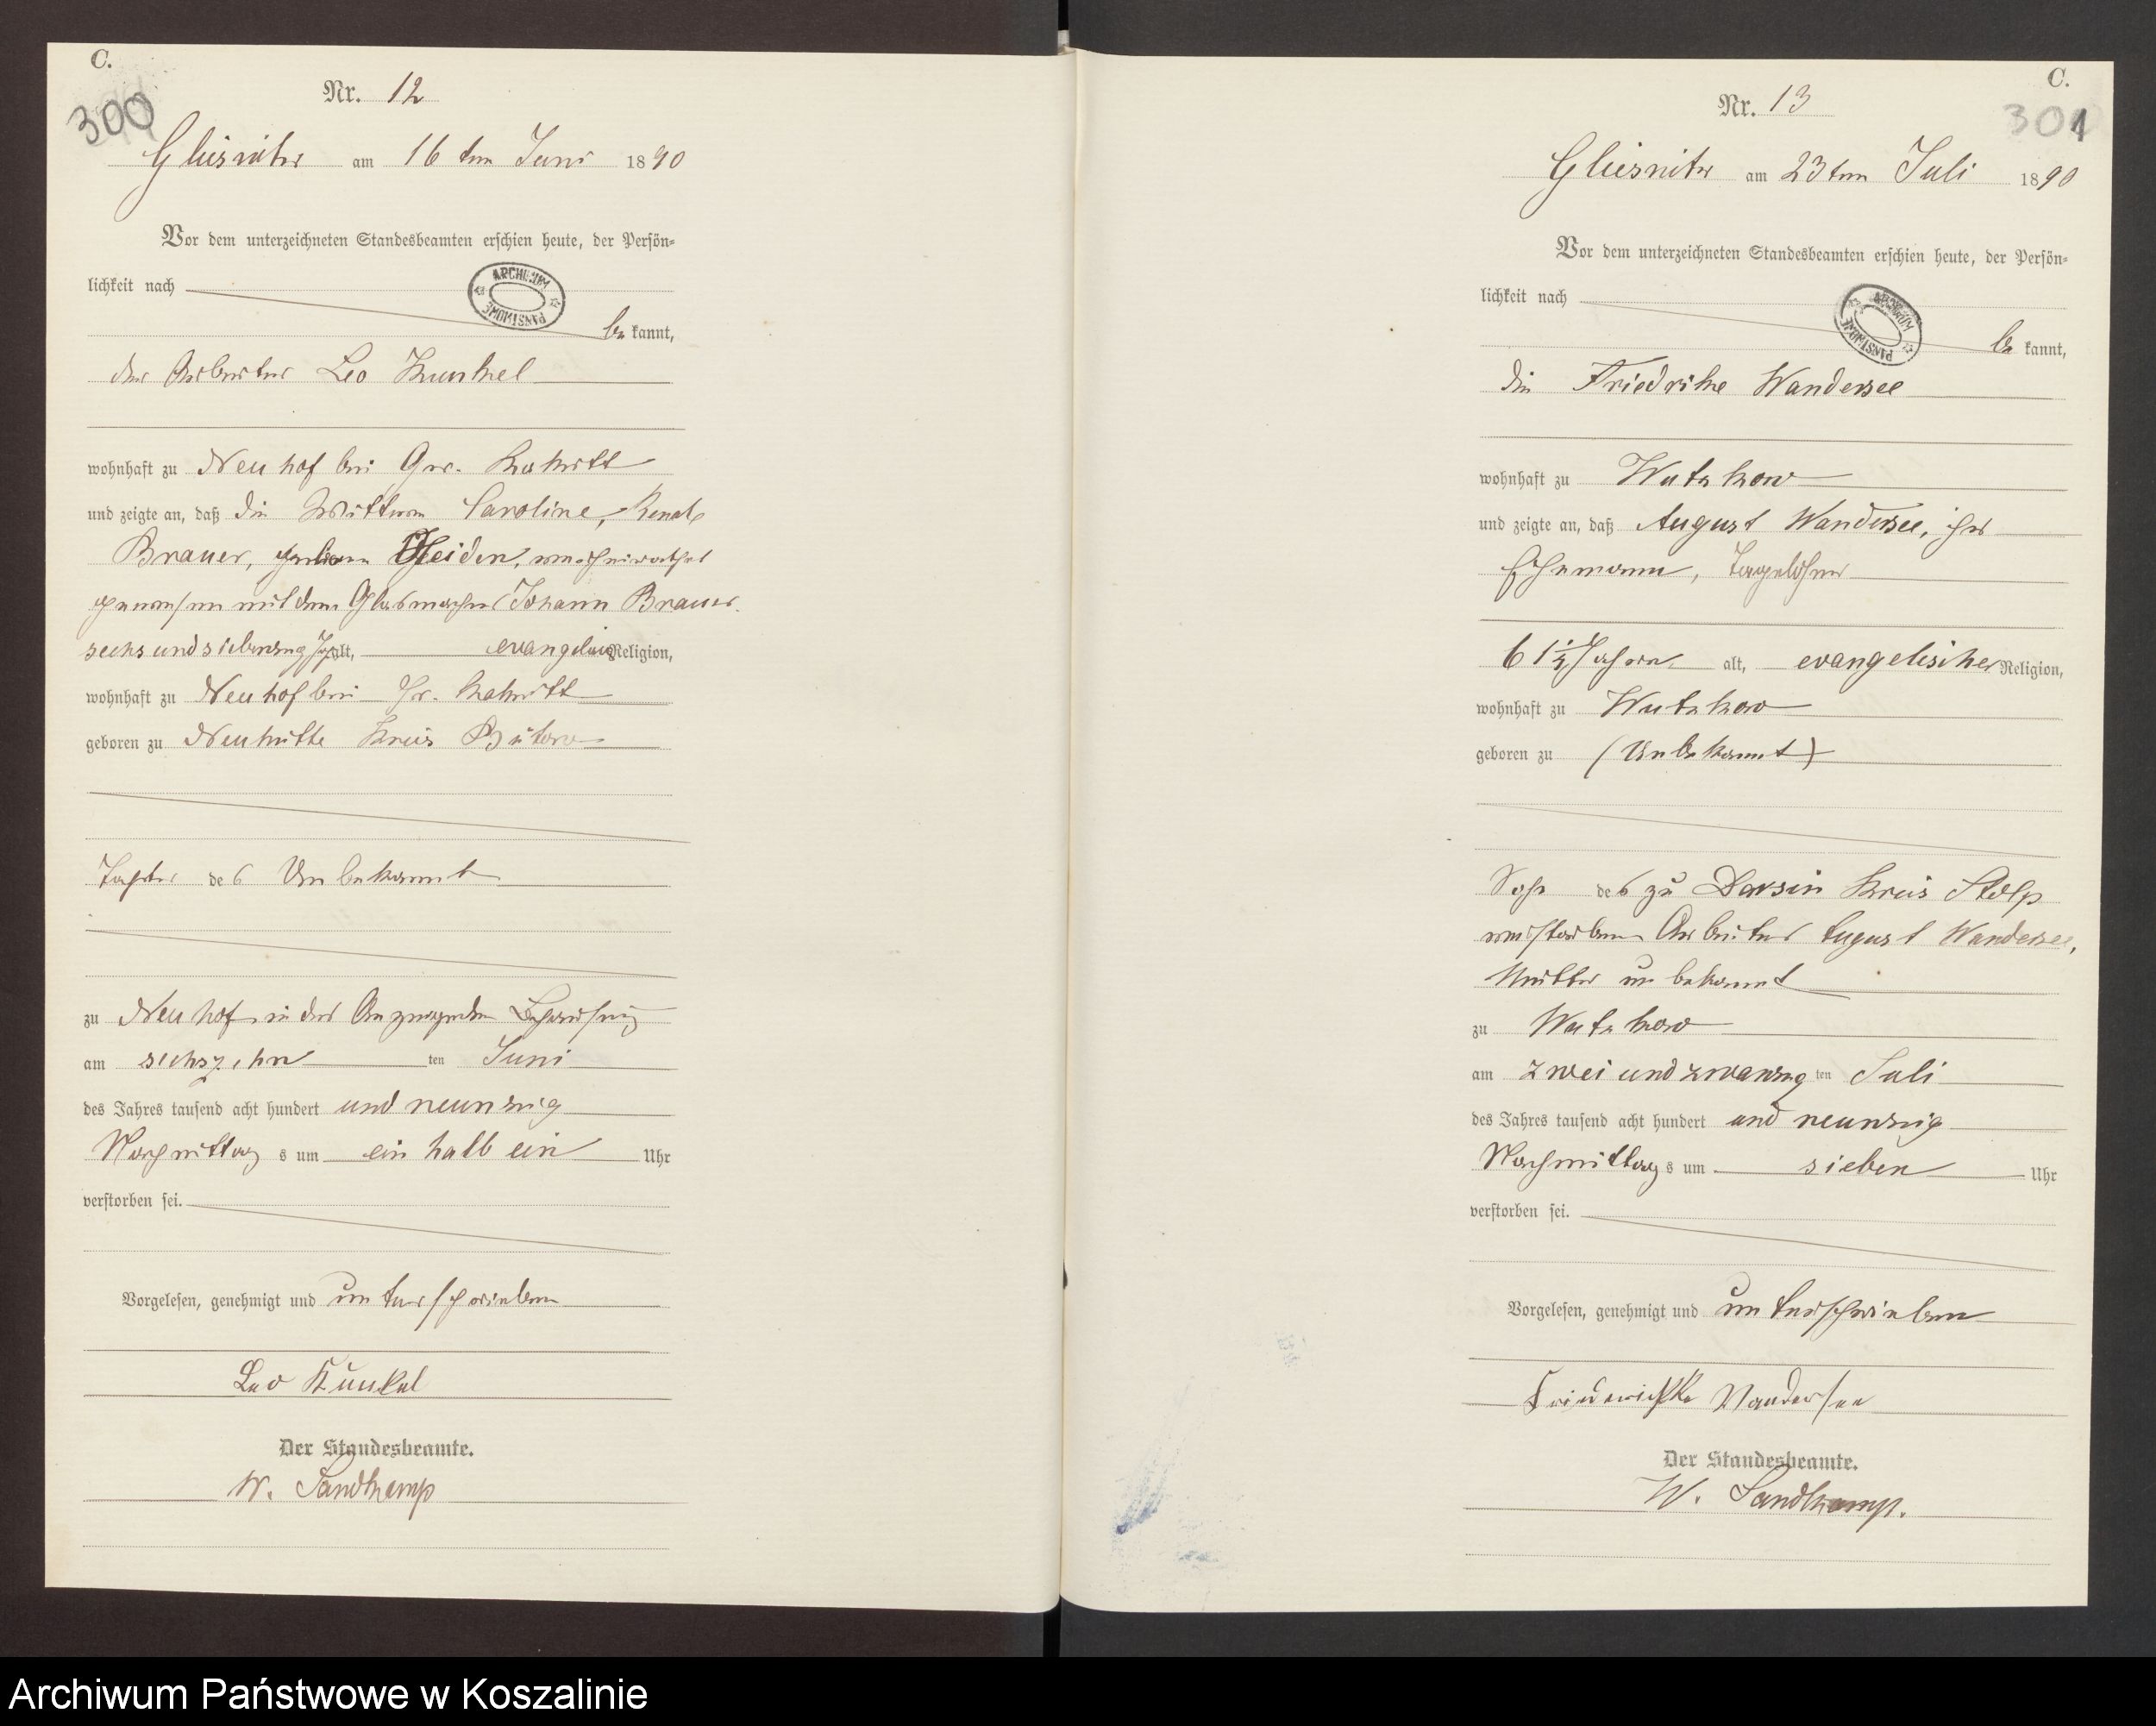 C.
300
Nr. 12
Gliesnitz am 16 ten Juni 1890
Vor dem unterzeichneten Standesbeamten erschien heute, der Persön-
lichkeit nach
ARCHIWUM PAŃSTWOWE
be kannt,
der Arbeiter Leo Kunkel
wohnhaft zu Neuhof bei Gr.
und zeigte an, daß die Wittwe Caroline, Renate
Brauer, geborene Heiden, verheirathet
gewesen mit dem Glasmacher Johann Brauer.
sechs und siebenzig J alt, evangelisch Religion,
wohnhaft zu Neuhof bei Gr.
geboren zu Neuhütte Kreis Bütow
Tochter des Unbekannt
zu Neuhof in der Behausung
am sechszehn ten Juni
des Jahres tausend acht hundert und neunzig
Nachmittag s um ein halb ein Uhr
verstorben sei.
Vorgelesen, genehmigt und unterschrieben
Leo Kunkel
Der Standesbeamte.
W. Sandkamp
C.
301
Nr. 13
Gliesnitz am 23 ten Juli 1890
Vor dem unterzeichneten Standesbeamten erschien heute, der Persön-
lichkeit nach
ARCHIWUM PAŃSTWOWE
be kannt,
die Friedrike Wandersee
wohnhaft zu Wutzkow
und zeigte an, daß August Wandersee, ihr
Ehemann, Tagelöhner
61½ Jahre alt, evangelischer Religion,
wohnhaft zu Wutzkow
geboren zu (Unbekannt)
Sohn des zu Darsin Kreis Stolp
verstorbenen Arbeiters August Wandersee,
Mutter unbekannt
zu Wutzkow
am zwei und zwanzig ten Juli
des Jahres tausend acht hundert und neunzig
Nachmittag s um sieben Uhr
verstorben sei.
Vorgelesen, genehmigt und unterschrieben
Wandersee
Der Standesbeamte.
W. Sandkamp.
Archiwum Państwowe w Koszalinie